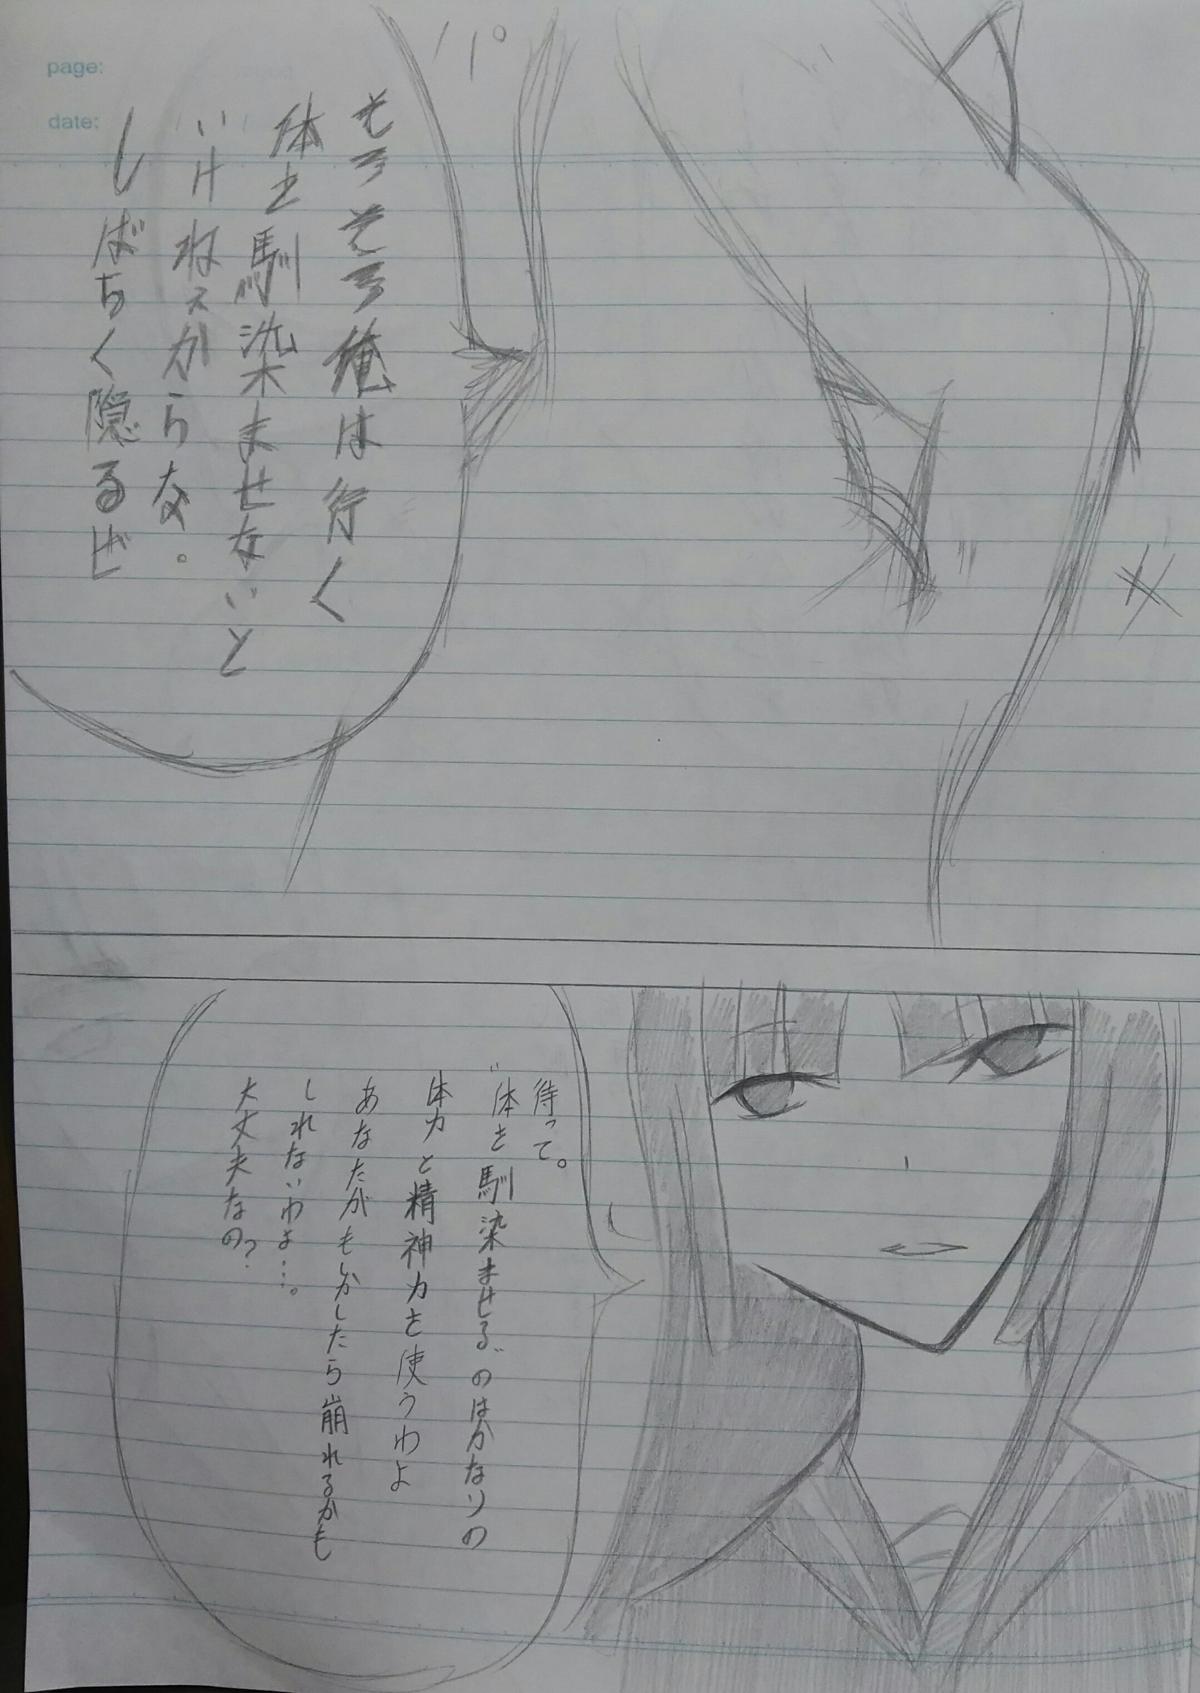 page:
date:
そろそろ俺は行く
体を馴染ませないと
いけねぇからな。
しばらく隠るぜ
待って。
"体を馴染ませる"のはかなりの
体力と精神力を使うわよ
あなたがもしかしたら崩れるかも
しれないわよ…。
大丈夫なの?